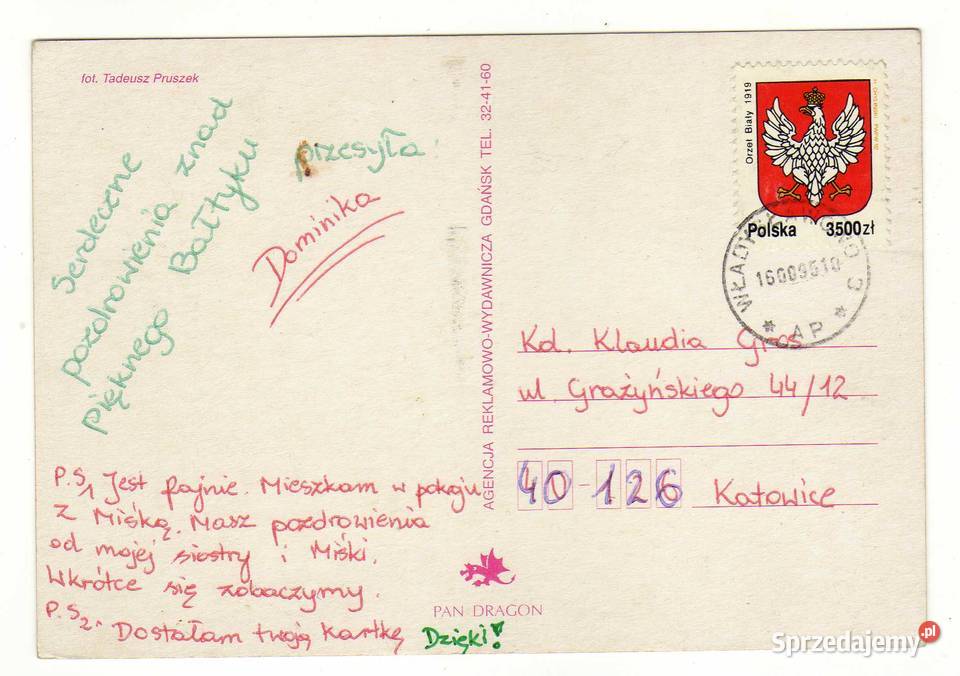 fot. Tadeusz Pruszek
Serdeczne
pozdrowienia znad
pięknego Bałtyku
przesyła
Dominika
P.S1 Jest fajnie. Mieszkam w pokoju
z Miśką. Masz pozdrowienia
od mojej siostry i Miśki.
Wkrótce się zobaczymy.
P.S2. Dostałam twoją kartkę Dzięki!
PAN DRAGON
AGENCJA REKLAMOWO-WYDAWNICZA GDAŃSK TEL. 32-41-60
Orzeł Biały 1919
Polska 3500zł
3
* AP *
Kd. Klaudia
ul. Grażyńskiego 44/12
40-126 Katowice
Sprzedajemy.pl